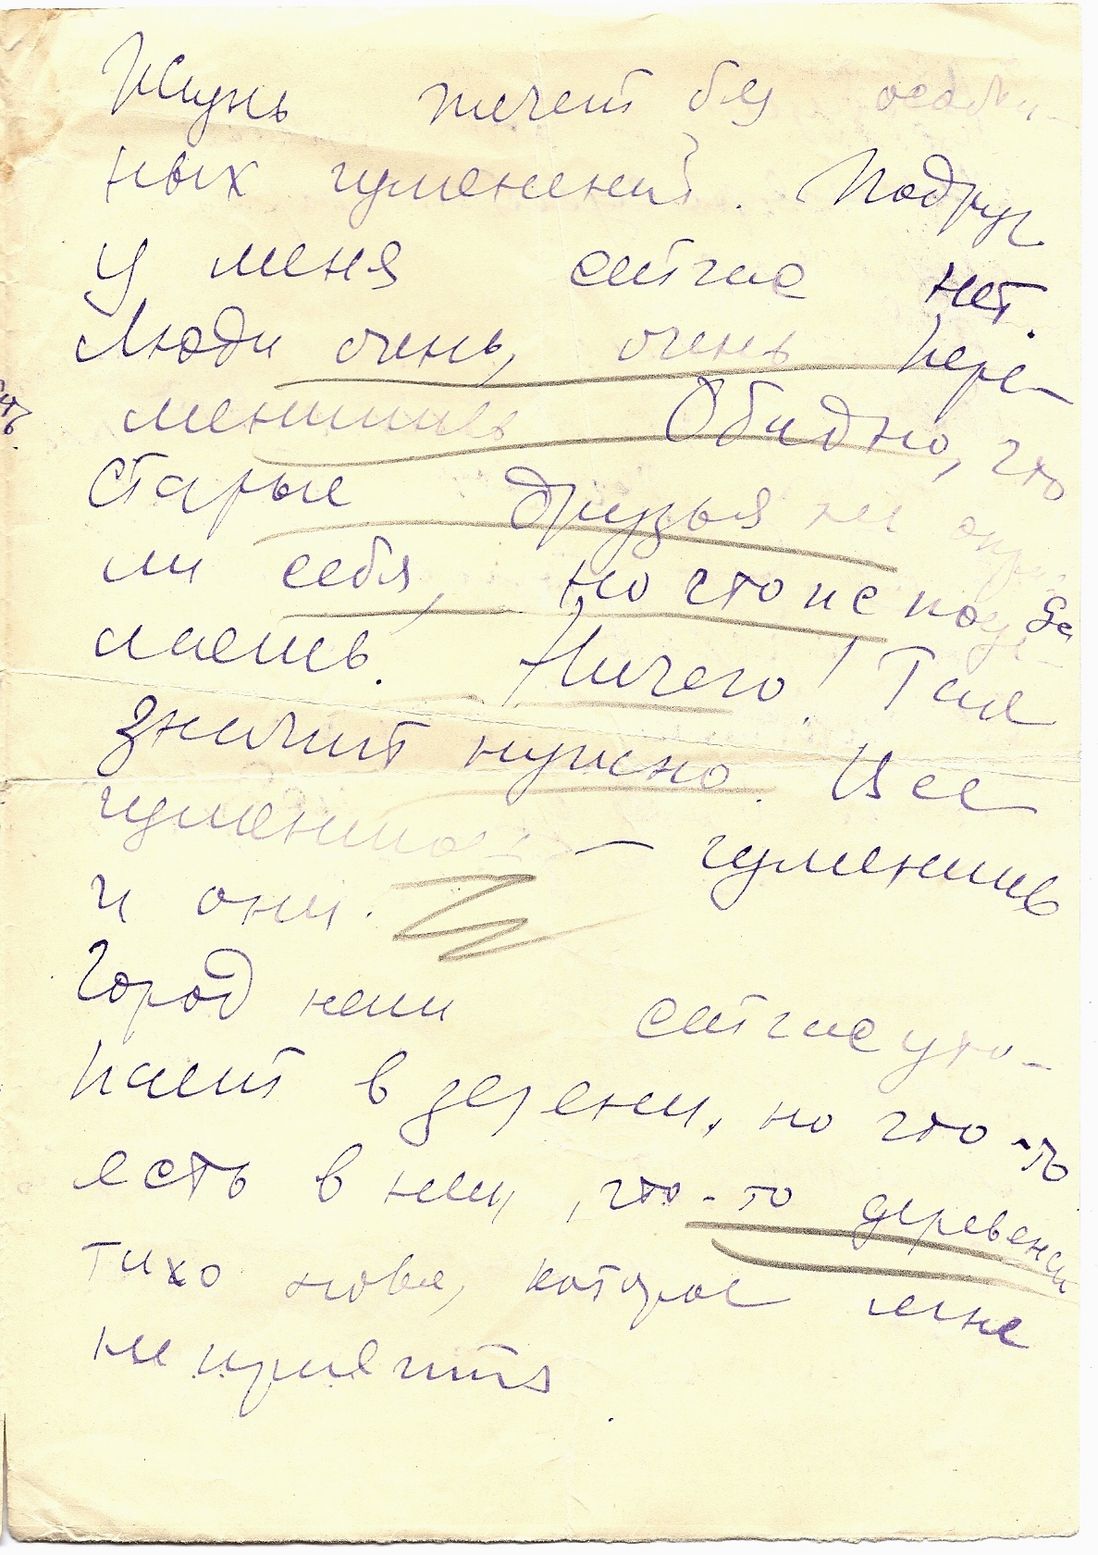 Жизнь течет без особен-
ных изменений. Подруг
у меня сейчас нет.
Люди очень, очень пере-
менились Обидно, что
старые друзья не опр
ли себя, но что не поде
лаешь. Ничего! Так
значит нужно. Все
изменилось — изменились
и они.
Город наш сейчас уто-
пает в зелени, но что-то
есть в нем, что-то деревенски
тихо новое, которое мне
не приятно